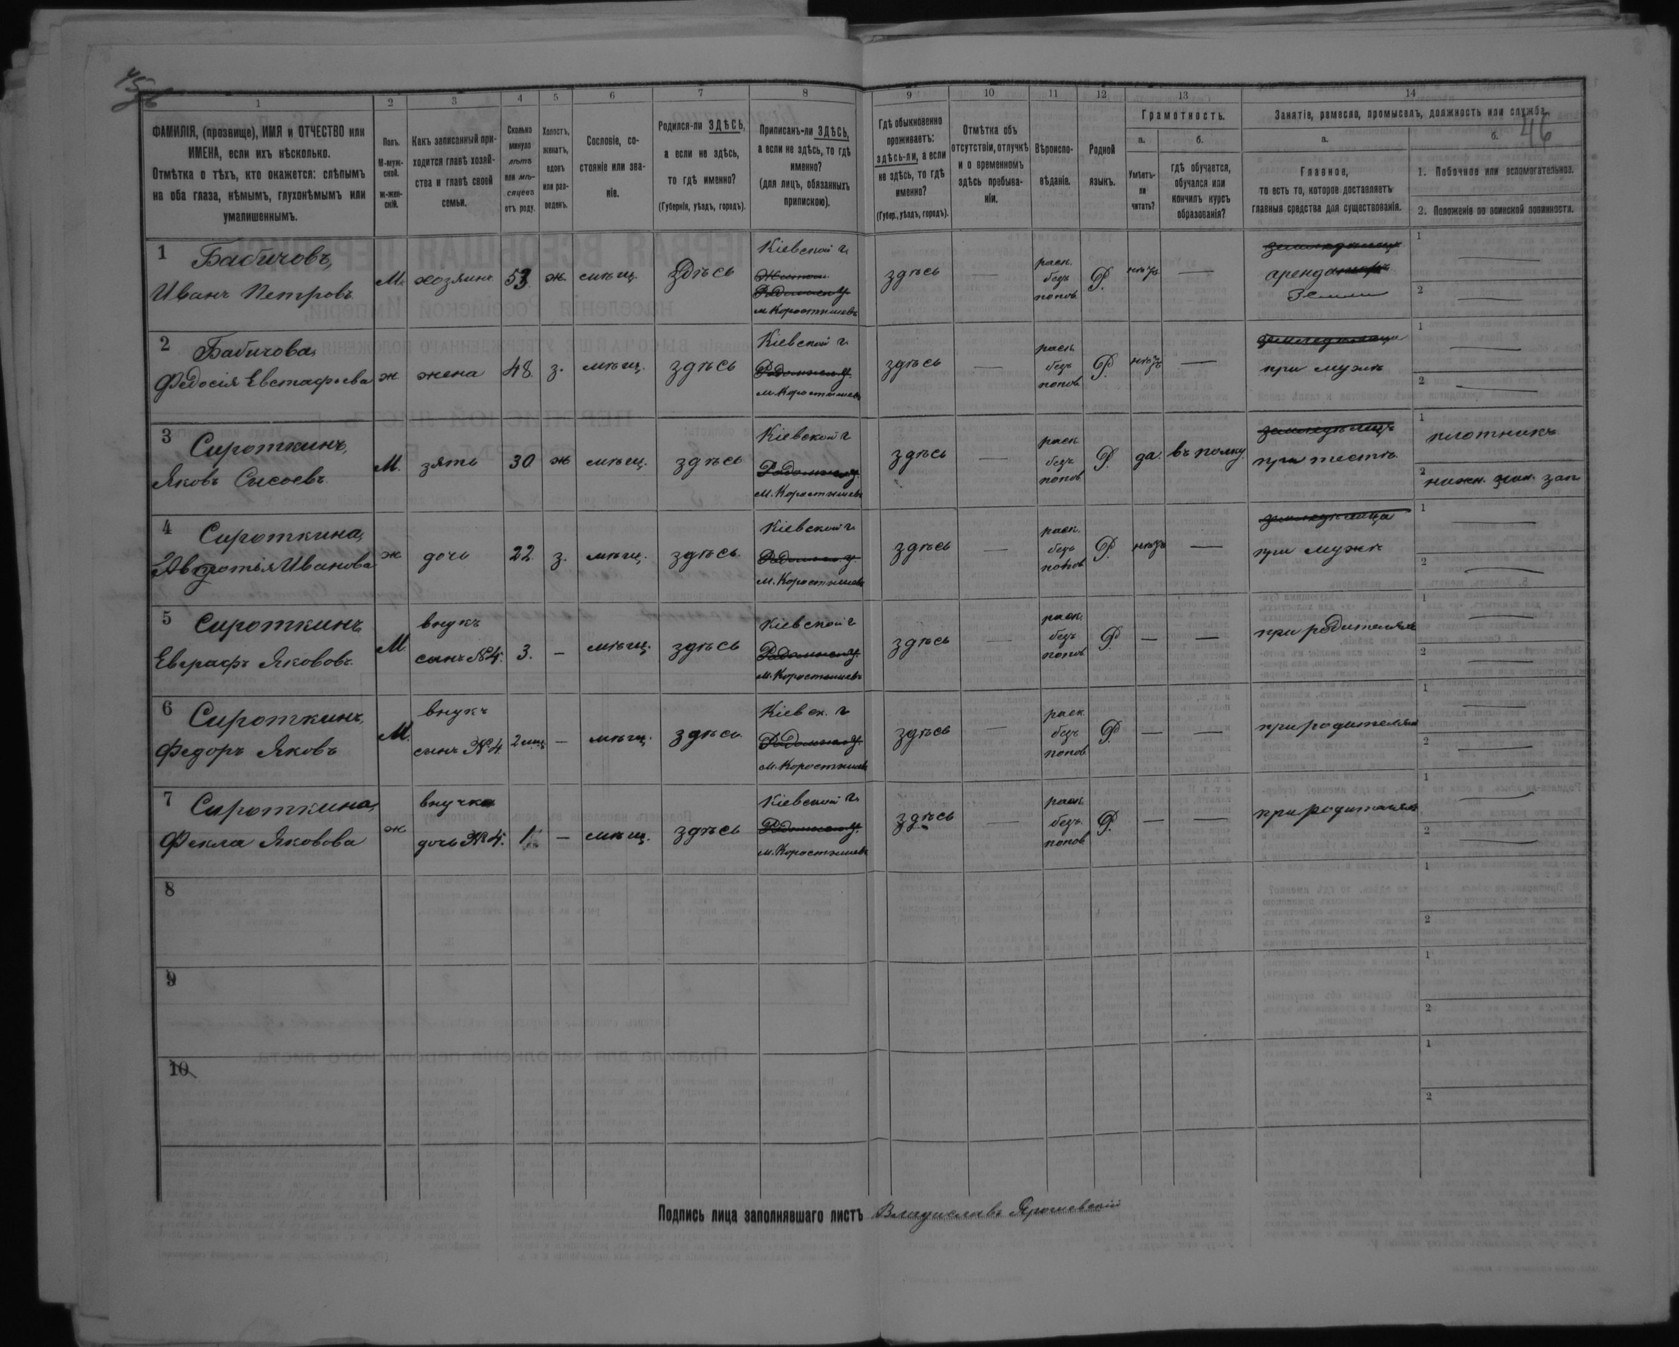 45
46
1 2 3 4 5 6 7 8 9 10 11 12 13 14
ФАМИЛІЯ, (прозвище), ИМЯ и ОТЧЕСТВО или
ИМЕНА, если ихъ нѣсколько.
Отмѣтка о тѣхъ, кто окажется: слѣпымъ
на оба глаза, нѣмымъ, глухонѣмымъ или
умалишеннымъ.
Полъ.
М-муж-
ской.
Ж-жен-
скій.
Какъ записанный при-
ходится главѣ хозяй-
ства и главѣ своей
семьи.
Сколько
минуло
лѣтъ
или мѣ-
сяцевъ
отъ роду.
Холостъ,
женатъ,
вдовъ
или раз-
веденъ.
Сословіе, со-
стояніе или зва-
ніе.
Родился-ли ЗДѢСЬ,
а если не здѣсь,
то гдѣ именно?
(Губернія, уѣздъ, городъ).
Приписанъ-ли ЗДѢСЬ,
а если не здѣсь, то гдѣ
именно?
(для лицъ, обязанныхъ
припискою).
Гдѣ обыкновенно
проживаетъ:
здѣсь-ли, а если
не здѣсь, то гдѣ
именно?
(Губер., уѣздъ, городъ).
Отмѣтка объ
отсутствіи, отлучкѣ
и о временномъ
здѣсь пребыва-
ніи.
Вѣроиспо-
вѣданіе.
Родной
языкъ.
Грамотность.
а.
Умѣетъ-
ли
читать?
б.
гдѣ обучается,
обучался или
кончилъ курсъ
образованія?
Занятіе, ремесло, промыселъ, должность или служба.
а.
Главное,
то есть то, которое доставляетъ
главныя средства для существованія.
б.
1. Побочное или вспомогательное.
2. Положеніе по воинской повинности.
1 Бабичовъ,
Иванъ Петровъ
М.
хозяинъ
53
ж.
мѣщ.
здѣсь
Кіевской г.
Радомысл. у.
м. Коростышевъ
здѣсь
—
раск.
безъ
попов.
Р.
нѣтъ
—
земледѣлецъ
арендаторъ
земли
1 —
2 —
2 Бабичова,
Федосія Евстафьева
ж
жена
48
з.
мѣщ.
здѣсь
Кіевской г.
Радомысл. у.
м. Коростышевъ
здѣсь
—
раск.
безъ
попов.
Р.
нѣтъ
—
земледѣлица
при мужѣ
1 —
2 —
3 Сироткинъ,
Яковъ Сысоевъ
М.
зять
30
ж
мѣщ.
здѣсь
Кіевской г
Радомысл. у.
м. Коростышевъ
здѣсь
—
раск.
безъ
попов.
Р.
да.
въ полку.
земледѣлецъ
при тестѣ
1 плотникъ
2 нижн. чин. зап
4 Сироткина,
Авдотья Иванова
ж
дочь
22
з.
мѣщ.
здѣсь
Кіевской г.
Радомысл. у.
м. Коростышевъ
здѣсь
—
раск.
безъ
попов.
Р.
нѣтъ
—
земледѣлица
при мужѣ
1 —
2 —
5 Сироткинъ
Евграфъ Якововъ
М
внукъ
сынъ №4.
3.
—
мѣщ.
здѣсь
Кіевской г
Радомысл. у.
м. Коростышевъ
здѣсь
—
раск.
безъ
попов.
Р.
—
—
при родителяхъ
1 —
2 —
6 Сироткинъ,
Федоръ Яковъ
М.
внукъ
сынъ №4
2 мѣс
—
мѣщ.
здѣсь
Кіевск. г.
Радомысл. у.
м. Коростышевъ
здѣсь
—
раск
безъ
попов.
Р.
—
—
при родителяхъ
1 —
2 —
7 Сироткина,
Фекла Яковова
ж.
внучка
дочь №4.
1
—
мѣщ.
здѣсь
Кіевской г.
Радомысл. у.
м. Коростышевъ
здѣсь
—
раск.
безъ
попов
Р.
—
—
при родителяхъ
1 —
2 —
8
1
2
9
1
2
10
1
2
Подпись лица заполнявшаго листъ Владиславъ Ярошевскій